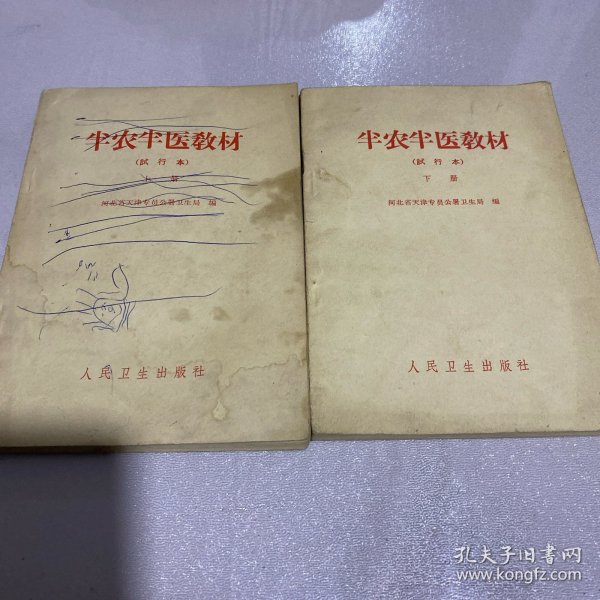 半农半医教材
(試行本)
上册
河北省天津专員公署卫生局 編
人民卫生出版社
半农半医教材
(試行本)
下册
河北省天津专員公署卫生局 編
人民卫生出版社
孔夫子旧書网
www.kongfz.com